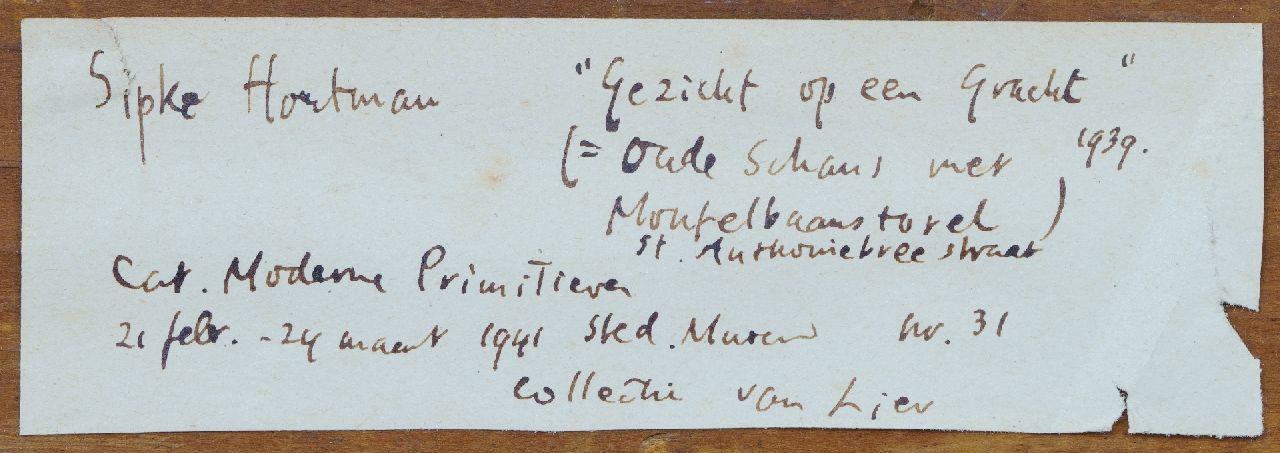 Sipke Houtman "Gezicht op een Gracht"
(= Oude Schans met 1939.
Montelbaanstoren)
St. Anthoniebreestraat
Cat. Moderne Primitieven
21 febr. - 24 maart 1941 Sted. Museum nr. 31
collectie van Lier